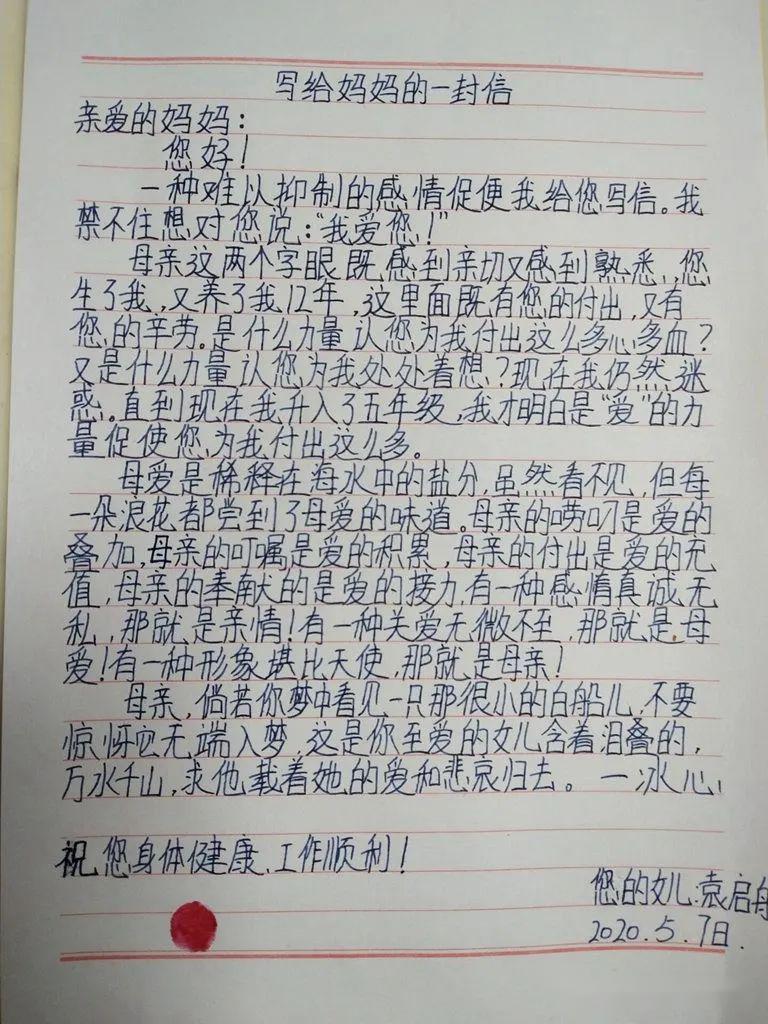 写给妈妈的一封信
亲爱的妈妈：
您好！
一种难以抑制的感情促使我给您写信。我
禁不住想对您说：“我爱您！”
母亲这两个字眼既感到亲切又感到熟悉，您
生了我，又养了我12年，这里面既有您的付出，又有
您的辛劳。是什么力量认您为我付出这么多心多血？
又是什么力量认您为我处处着想？现在我仍然迷
惑。直到现在我升入了五年级，我才明白是“爱”的力
量促使您为我付出这么多。
母爱是稀释在海水中的盐分，虽然看不见，但每
一朵浪花都尝到了母爱的味道。母亲的唠叨是爱的
叠加，母亲的叮嘱是爱的积累，母亲的付出是爱的充
值，母亲的奉献的是爱的接力，有一种感情真诚无
私，那就是亲情！有一种关爱无微不至，那就是母
爱！有一种形象堪比天使，那就是母亲！
母亲，倘若你梦中看见一只那很小的白船儿，不要
惊怀它无端入梦，这是你至爱的女儿含着泪叠的，
万水千山，求他载着她的爱和悲哀归去。一冰心
祝您身体健康，工作顺利！
您的女儿：袁启
2020.5.7日.